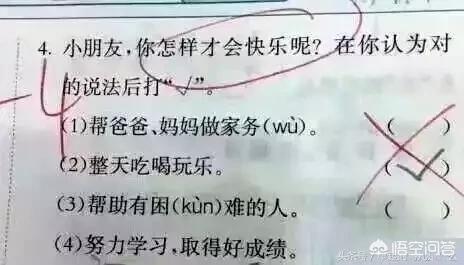 4. 小朋友,你怎样才会快乐呢?在你认为对
的说法后打“√”。
(1)帮爸爸、妈妈做家务(wù)。 ( )
(2)整天吃喝玩乐。 (√)
(3)帮助有困(kùn)难的人。 ( )
(4)努力学习,取得好成绩。
-4
悟空问答